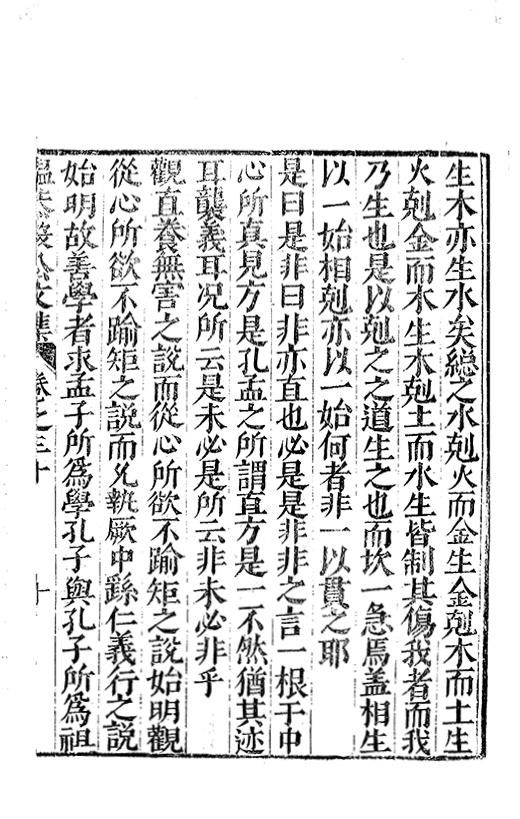 生木亦生水矣総之水剋火而金生金剋木而土生
火剋金而水生木剋土而水生皆制其傷我者而我
乃生也是以剋之之道生之也而坎一急焉盖相生
以一始相剋亦以一始何者非一以貫之耶
是曰是非曰非亦直也必是是非非之言一根于中
心所真見方是孔孟之所謂直方是一不然猶其迹
耳襲義耳况所云是未必是所云非未必非乎
觀直養無害之說而從心所欲不踰矩之說始明觀
從心所欲不踰矩之說而允執厥中繇仁義行之說
始明故善學者求孟子所爲學孔子與孔子所爲祖
文集 卷之三十 十